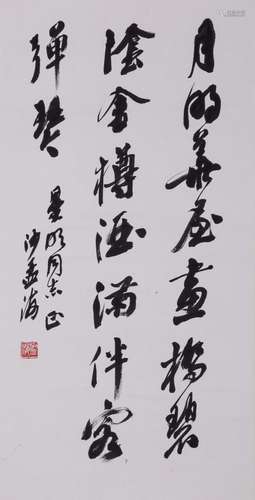 月明華屋畫橋碧
陰金樽酒滿伴客
彈琴
明同志正
沙孟海